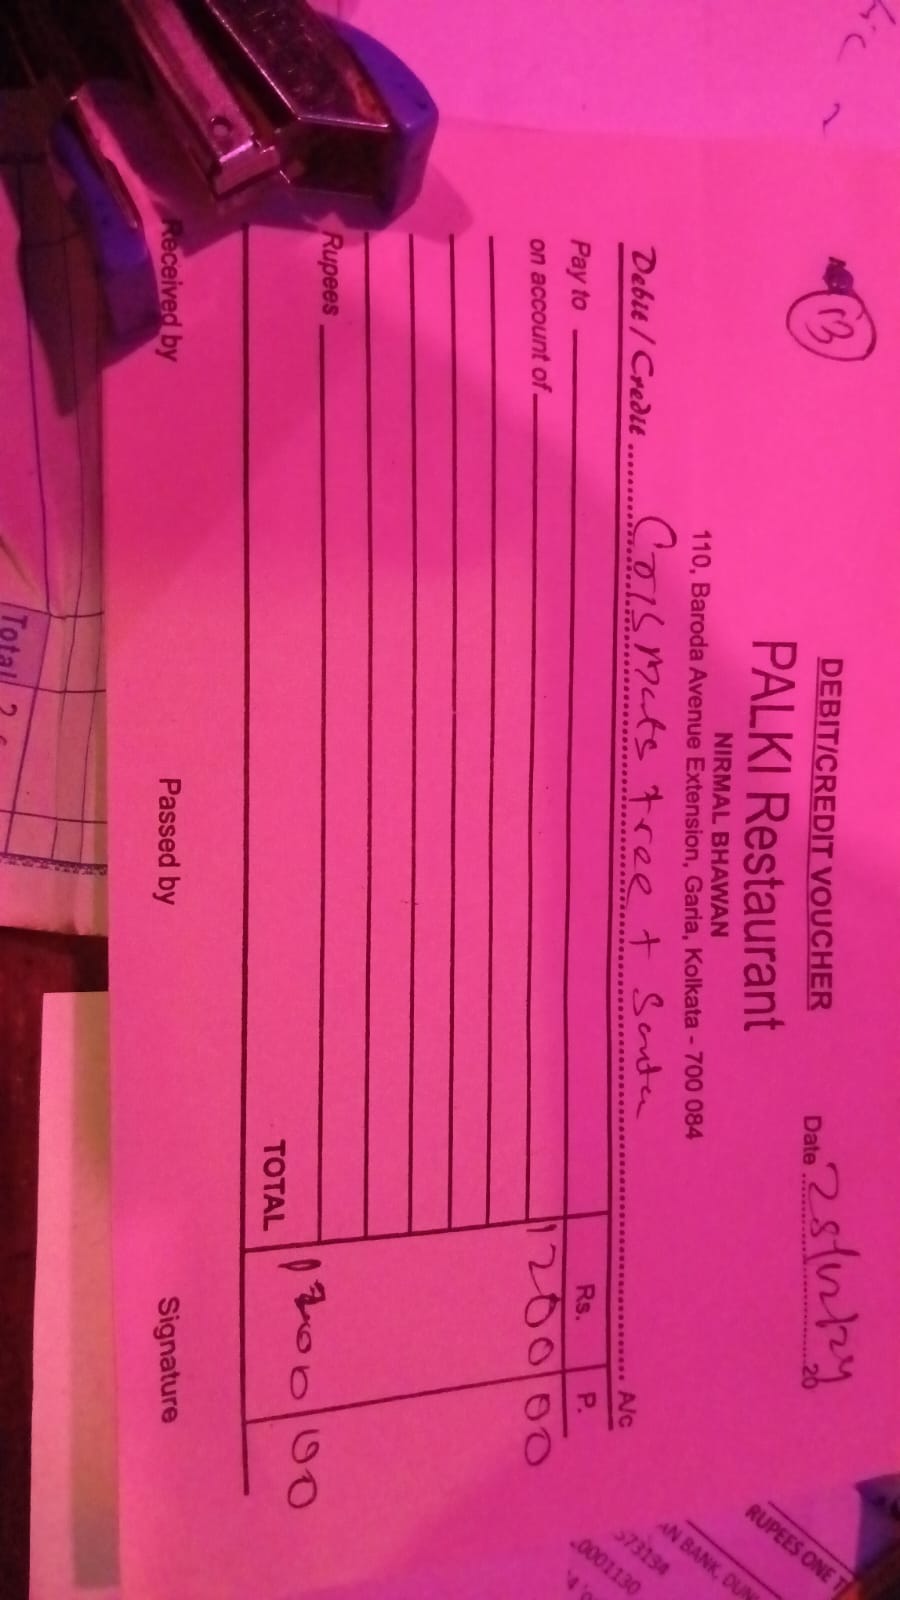 13
DEBIT/CREDIT VOUCHER
PALKI Restaurant
NIRMAL BHAWAN
110, Baroda Avenue Extension, Garia, Kolkata - 700 084
Date 25/12/24 20
Debit / Credit Crismats tree + Santa A/c
Pay to Rs. P.
on account of 1200 00
Rupees
TOTAL 1200 00
Received by Passed by Signature
Total
RUPEES ONE T
AN BANK, DUN
573134
0001130